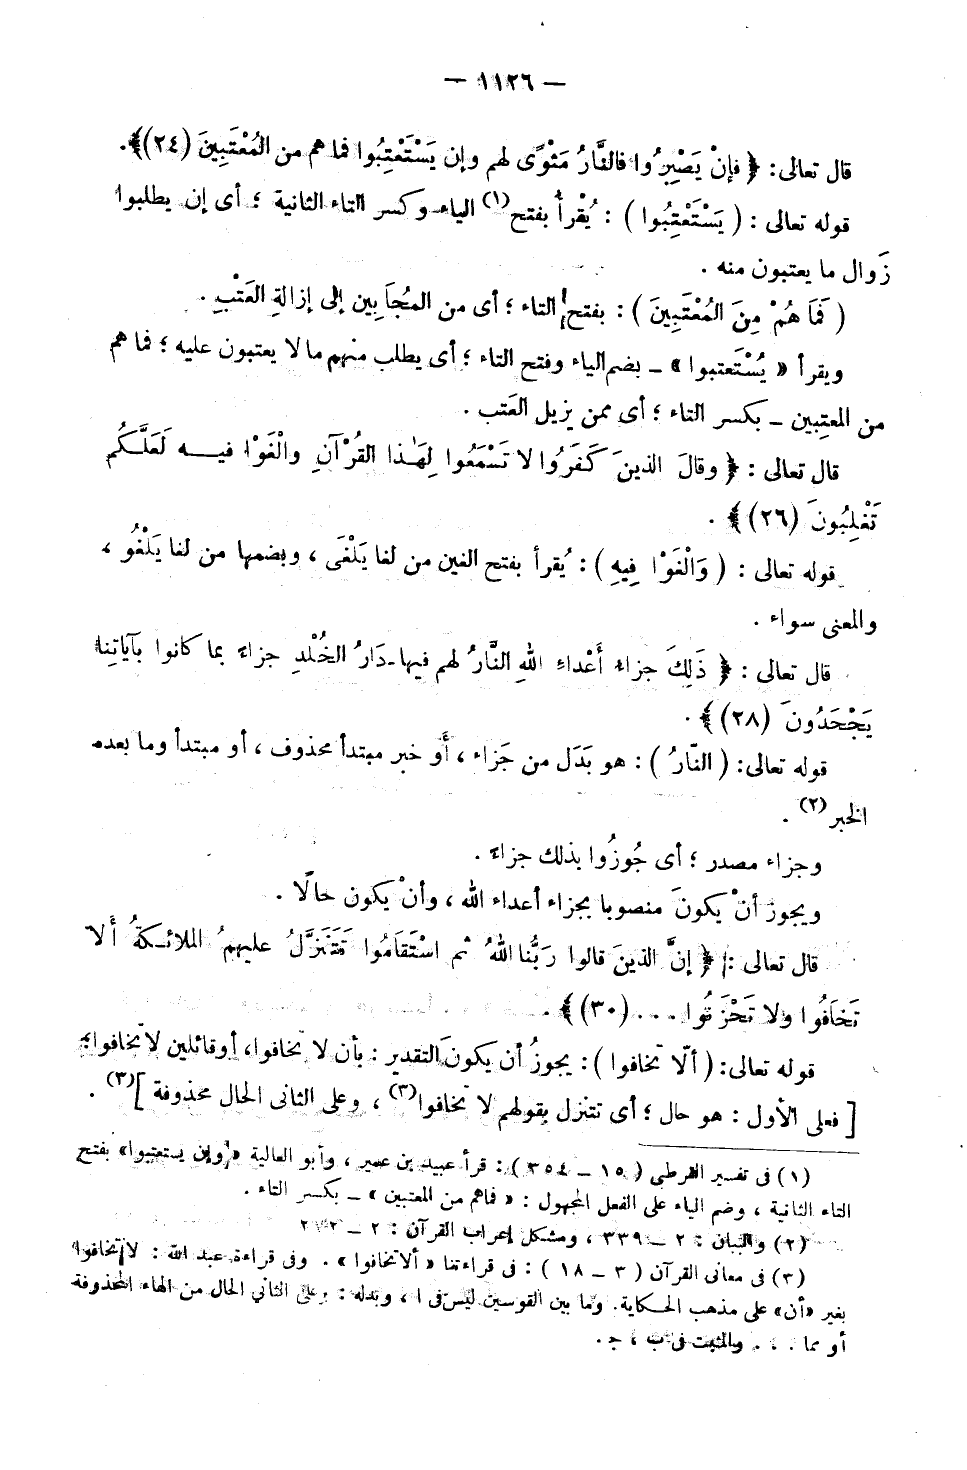 — ١١٢٦ —
قال تعالى: ﴿ فإنْ يَصْبِرُوا فالنَّارُ مَثْوًى لهم وإن يَسْتَعْتِبُوا فما هم من المُعْتَبِينَ (٢٤)﴾.
قوله تعالى : ( يَسْتَعْتِبُوا ) : يُقْرأُ بفتح(١) الياء وكسر التاء الثانية ؛ أى إن يطلبوا
زَوال ما يعتبون منه .
( فَمَا هُمْ مِنَ المُعْتَبِينَ ) : بفتح التاء ؛ أى من المُجَابين إلى إزالةِ العَتْبِ .
ويقرأ « يُسْتَعتبوا » ـ بضم الياء وفتح التاء ؛ أى يطلب منهم ما لا يعتبون عليه ؛ فما هم
من المعتِبين ـ بكسر التاء ؛ أى ممن يزيل العَتب .
قال تعالى : ﴿ وقالَ الذينَ كَفَرُوا لا تَسْمَعُوا لِهَٰذا القُرْآنِ والْغَوْا فيــه لَعَلَّكُم
تَغْلِبُونَ (٢٦) ﴾ .
قوله تعالى : ( وَالْغَوْا فِيهِ ) : يُقرأ بفتح الغين من لغا يَلْغَى ، وبضمها من لغا يَلْغُو ،
والمعنى سواء .
قال تعالى : ﴿ ذَلِكَ جزاءُ أَعْداءِ اللهِ النَّارُ لهم فيها دَارُ الخُلْدِ جزاءً بما كانوا بآياتِنا
يَجْحَدُونَ (٢٨) ﴾ .
قوله تعالى: ( النّارُ ) : هو بَدَل من جَزاء ، أَو خبر مبتدأ محذوف ، أو مبتدأ وما بعده
الخبر(٢) .
وجزاء مصدر ؛ أى جُوزُوا بذلك جزاءً .
ويجوز أنْ يكونَ منصوبا بجزاء أعداء الله ، وأنْ يكون حالًا .
قال تعالى : ﴿ إنَّ الذينَ قالوا رَبُّنا اللهُ ثم اسْتَقَامُوا تَتَنَزَّلُ عليهمُ الملائـكةُ أَلا
تَخافُوا ولا تَحْزَنُوا . . . (٣٠)﴾ .
قوله تعالى: ( ألّا تخافوا ) : يجوزُ أن يكونَ التقدير : بأن لا تخافوا، أو قائلين لا تخافوا؛
[ فعلى الأول : هو حال ؛ أى تتنزل بقولهم لا تخافوا(٣) ، وعلى الثانى الحال محذوفة ](٣) .
(١) فى تفسير القرطبى ( ١٥ ـ ٣٥٤ ) : قرأ عبيد بن عمير ، وأبو العالية «وإن يستعتبوا» بفتح
التاء الثانية ، وضم الياء على الفعل المجهول : « فماهم من المعتبين » ـ بكسر التاء .
(٢) والبيان : ٢ ـ ٣٣٩ ، ومشكل إعراب القرآن : ٢ ـ
(٣) فى معانى القرآن ( ٣ ـ ١٨ ) : فى قراءتنا « ألا تخافوا » . وفى قراءة عبد الله : لا تخافوا
بغير «أن» على مذهب الحكاية. وما بين القوسين ليس فى ا ، وبدله : وعلى الثاني الحال من الهاء المحذوفة
أو مما . . . والمثبت فى ب ، ج .